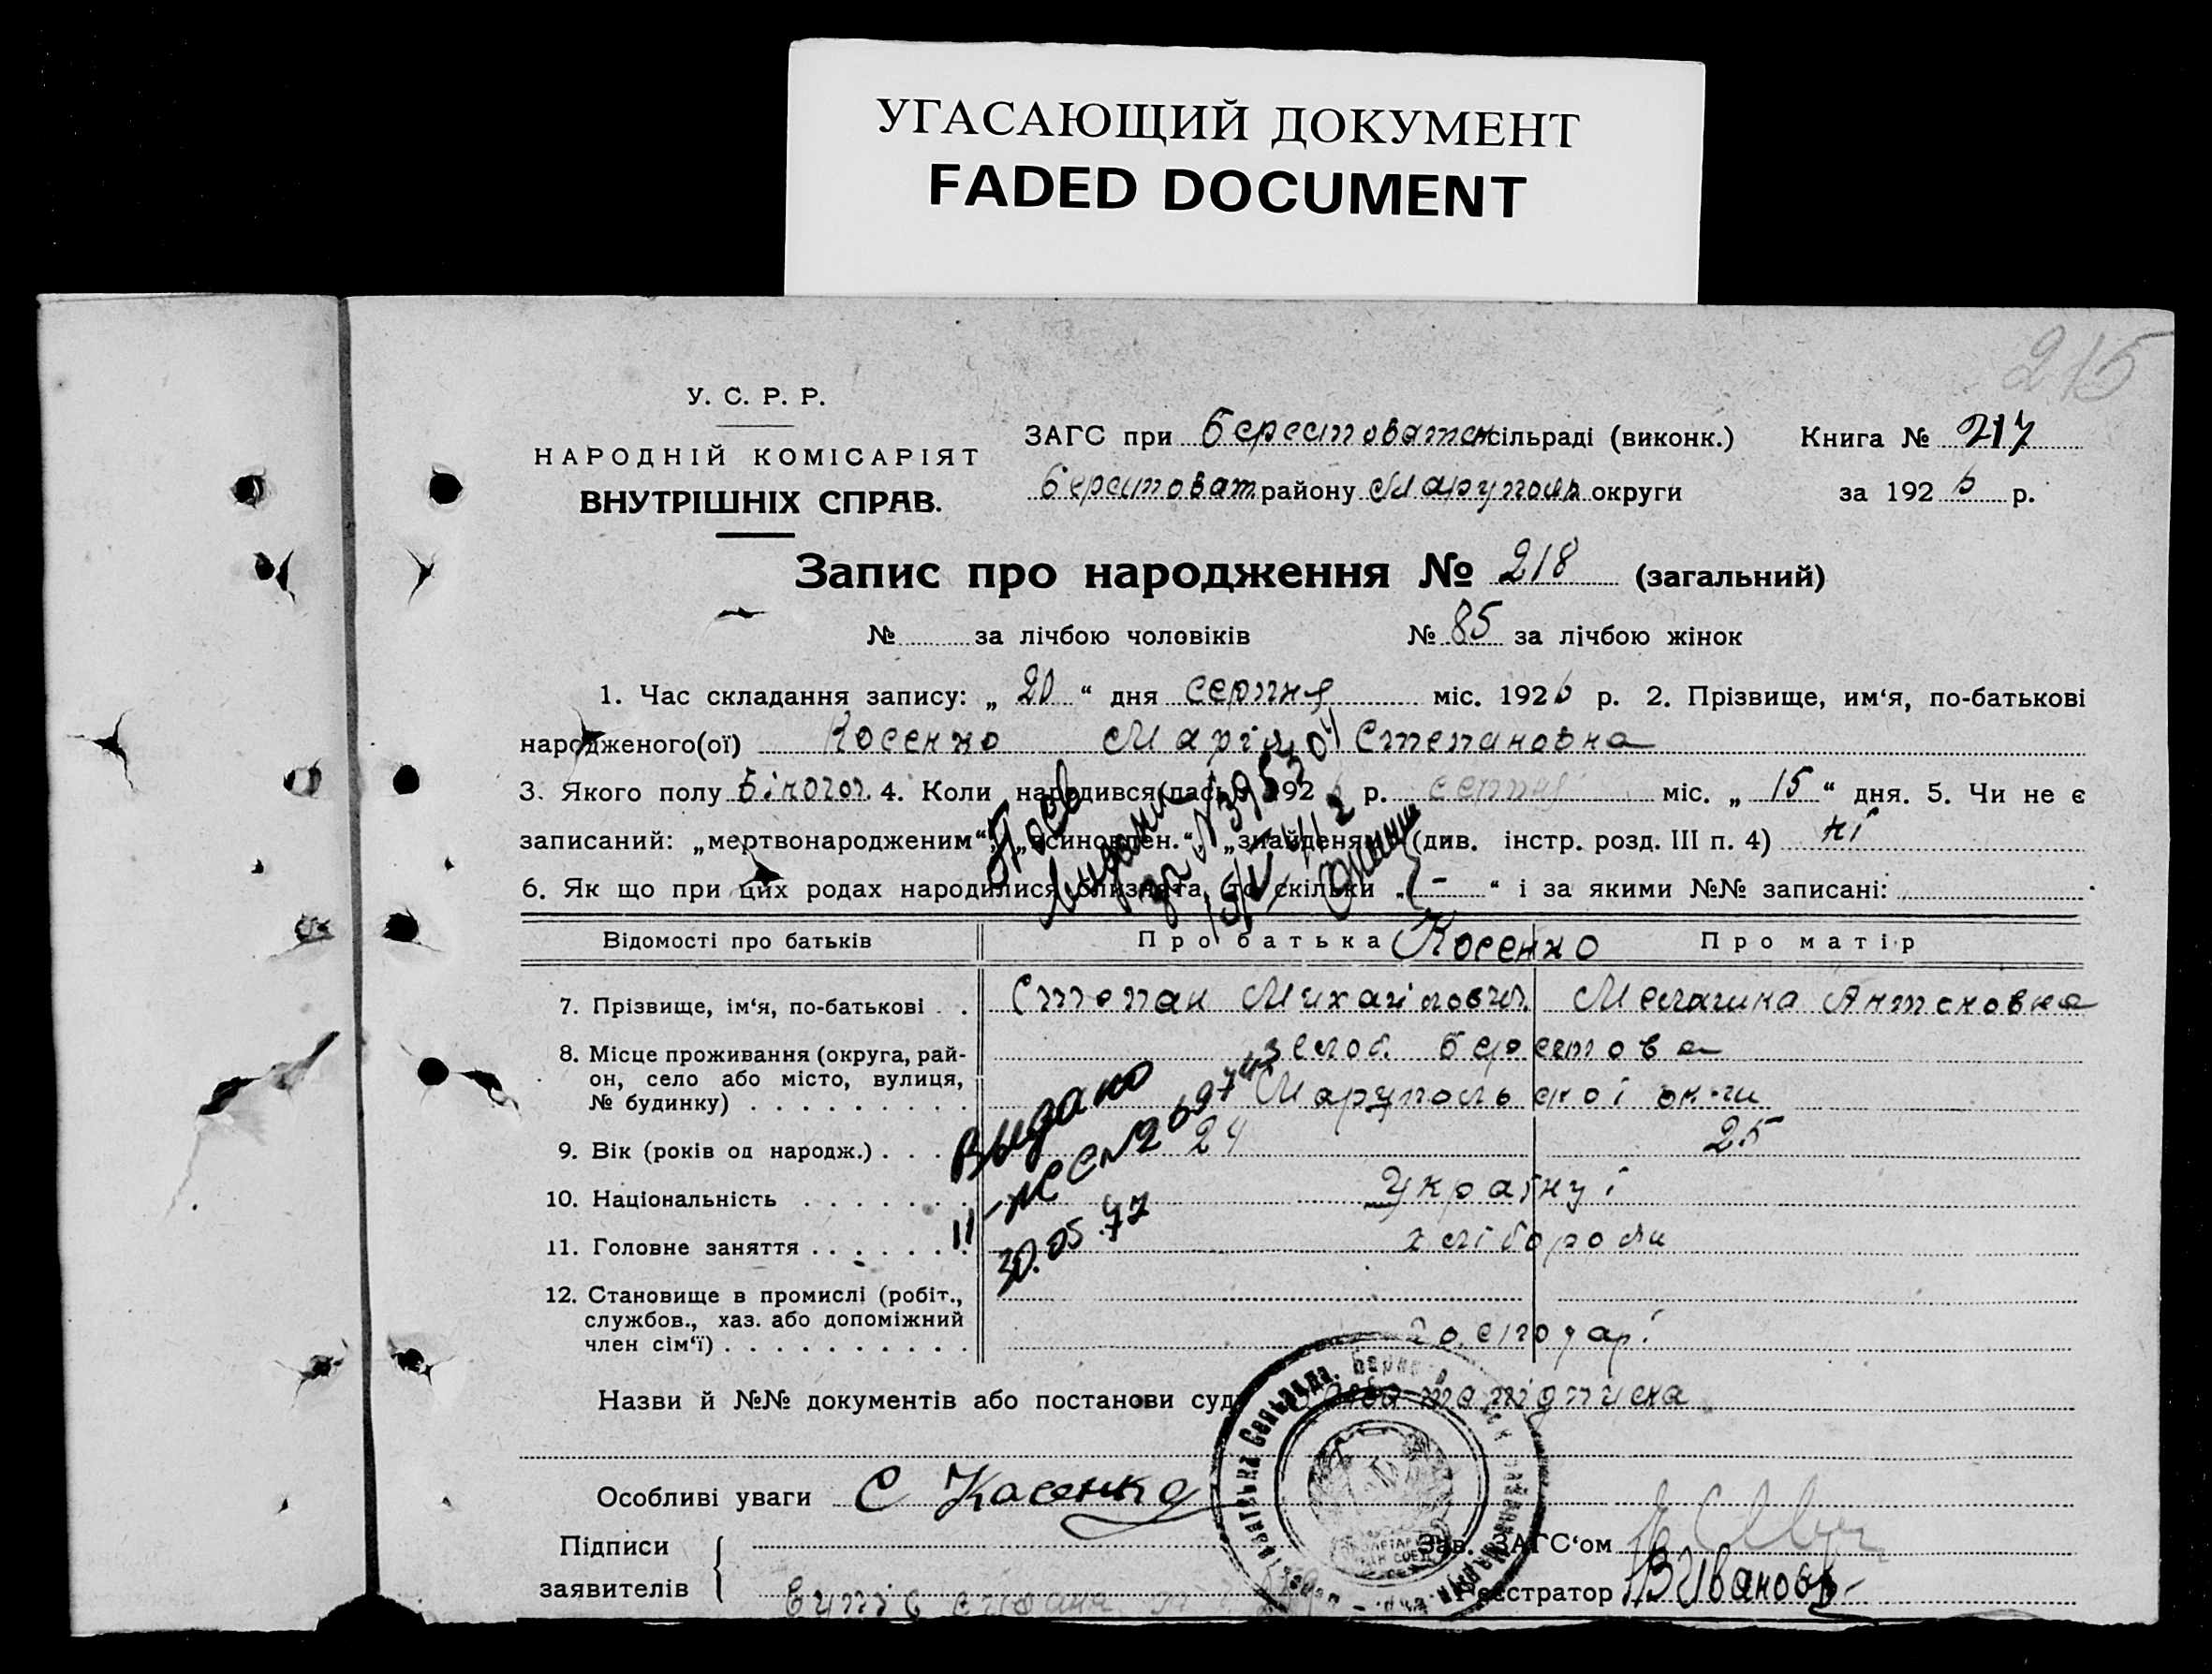 УГАСАЮЩИЙ ДОКУМЕНТ
FADED DOCUMENT
215
У. С. Р. Р.
НАРОДНІЙ КОМІСАРІЯТ
ВНУТРІШНІХ СПРАВ.
ЗАГС при Берестоватск сільраді (виконк.) Книга № 217
Берестоват району Маруполь округи за 1926 р.
Запис про народження № 218 (загальний)
№ за лічбою чоловіків № 85 за лічбою жінок
1. Час складання запису: „ 20 “ дня серпня міс. 1926 р. 2. Прізвище, им‘я, по-батькові
народженого(ої) Косенко Марія Степановна
3. Якого полу 4. Коли народився(лась) 192 р. серпня міс. „ 15 “ дня. 5. Чи не є
записаний: „мертвонародженим“, „усиновлен.“ „знайденям“ (див. інстр. розд. III п. 4) ні
6. Як що при цих родах народилися близнята, то скільки „ - “ і за якими №№ записані:
Відомості про батьків Про батька Косенко Про матір
7. Прізвище, ім‘я, по-батькові . . Степан Михайлович Мелашка Антоновна
8. Місце проживання (округа, рай-
он, село або місто, вулиця,
№ будинку)
слоб. Берестова
Марупольскої
9. Вік (років од народж.) 24 25
10. Національність Україну і
11. Головне заняття хлібороби
12. Становище в промислі (робіт.,
службов., хаз. або допоміжний
член сім‘ї)
господарі
Видано
30.05.77
Назви й №№ документів або постанови суду та підписка
Особливі уваги С Касенко
Підписи
заявителів
Зав. ЗАГС‘ом
Реєстратор В Ивановъ